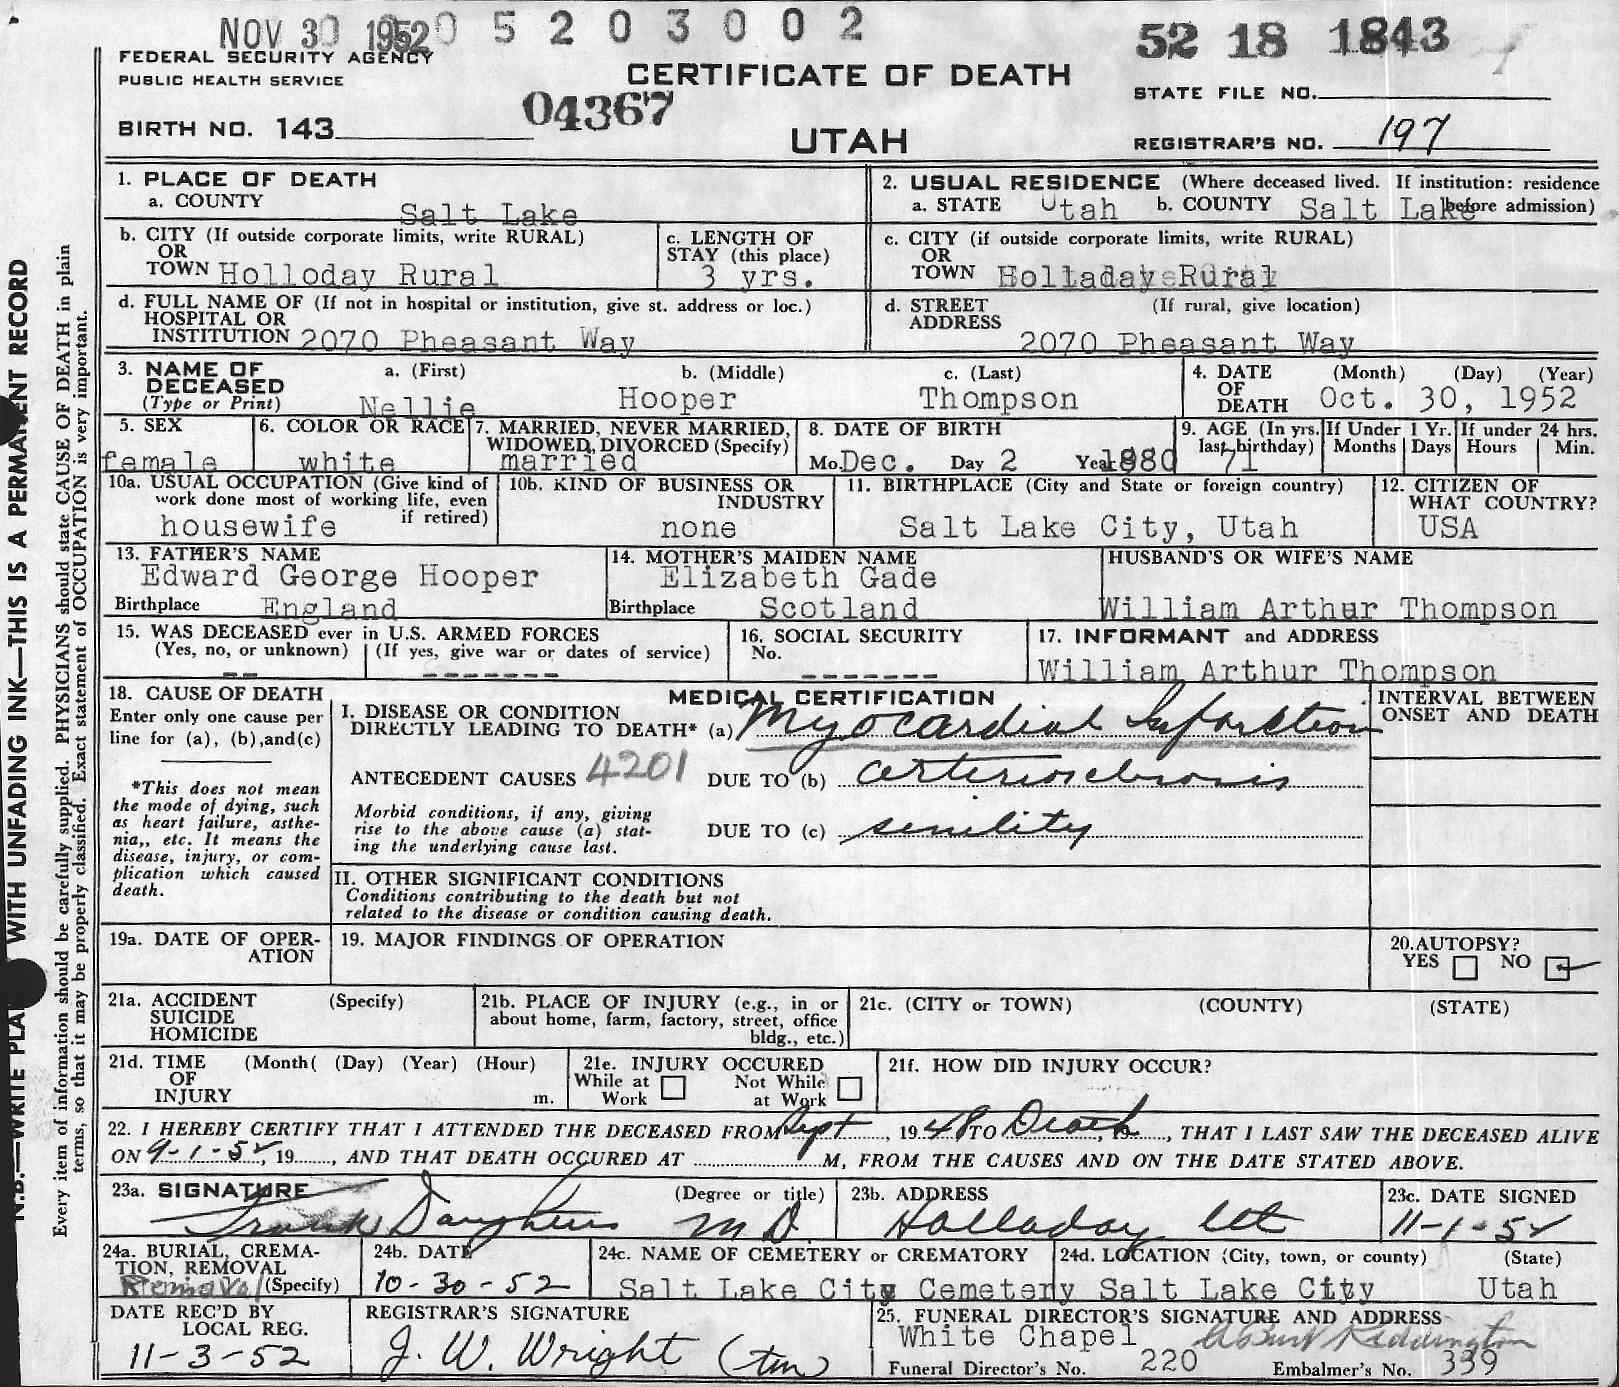 NOV 30 1952 0 5 2 0 3 0 0 2
52 18 1843
FEDERAL SECURITY AGENCY
PUBLIC HEALTH SERVICE
CERTIFICATE OF DEATH
STATE FILE NO.
BIRTH NO. 143
04367
UTAH
REGISTRAR'S NO. 197
N.B.—WRITE PLA WITH UNFADING INK—THIS IS A PERMANENT RECORD
Every item of information should be carefully supplied. PHYSICIANS should state CAUSE OF DEATH in plain
terms, so that it may be properly classified. Exact statement of OCCUPATION is very important.
1. PLACE OF DEATH
a. COUNTY Salt Lake
2. USUAL RESIDENCE (Where deceased lived. If institution: residence
a. STATE Utah b. COUNTY Salt Lake before admission)
b. CITY (If outside corporate limits, write RURAL)
OR
TOWN Holloday Rural
c. LENGTH OF
STAY (this place)
3 yrs.
c. CITY (if outside corporate limits, write RURAL)
OR
TOWN Holladay Rural
d. FULL NAME OF (If not in hospital or institution, give st. address or loc.)
HOSPITAL OR
INSTITUTION 2070 Pheasant Way
d. STREET (If rural, give location)
ADDRESS
2070 Pheasant Way
3. NAME OF a. (First) b. (Middle) c. (Last)
DECEASED
(Type or Print) Nellie Hooper Thompson
4. DATE (Month) (Day) (Year)
OF
DEATH Oct. 30, 1952
5. SEX
female
6. COLOR OR RACE
white
7. MARRIED, NEVER MARRIED,
WIDOWED, DIVORCED (Specify)
married
8. DATE OF BIRTH
Mo. Dec. Day 2 Year 1880
9. AGE (In yrs.
last birthday)
71
If Under 1 Yr.
Months Days
If under 24 hrs.
Hours Min.
10a. USUAL OCCUPATION (Give kind of
work done most of working life, even
if retired)
housewife
10b. KIND OF BUSINESS OR
INDUSTRY
none
11. BIRTHPLACE (City and State or foreign country)
Salt Lake City, Utah
12. CITIZEN OF
WHAT COUNTRY?
USA
13. FATHER'S NAME
Edward George Hooper
Birthplace England
14. MOTHER'S MAIDEN NAME
Elizabeth Gade
Birthplace Scotland
HUSBAND'S OR WIFE'S NAME
William Arthur Thompson
15. WAS DECEASED ever in U.S. ARMED FORCES
(Yes, no, or unknown) (If yes, give war or dates of service)
-- -------
16. SOCIAL SECURITY
No.
-------
17. INFORMANT and ADDRESS
William Arthur Thompson
18. CAUSE OF DEATH
Enter only one cause per
line for (a), (b),and(c)
*This does not mean
the mode of dying, such
as heart failure, asthe-
nia,, etc. It means the
disease, injury, or com-
plication which caused
death.
MEDICAL CERTIFICATION
I. DISEASE OR CONDITION
DIRECTLY LEADING TO DEATH* (a) Myocardial Infarction
ANTECEDENT CAUSES 4201 DUE TO (b) arteriosclerosis
Morbid conditions, if any, giving
rise to the above cause (a) stat-
ing the underlying cause last.
DUE TO (c) senility
II. OTHER SIGNIFICANT CONDITIONS
Conditions contributing to the death but not
related to the disease or condition causing death.
INTERVAL BETWEEN
ONSET AND DEATH
19a. DATE OF OPER-
ATION
19. MAJOR FINDINGS OF OPERATION
20.AUTOPSY?
YES NO
21a. ACCIDENT (Specify)
SUICIDE
HOMICIDE
21b. PLACE OF INJURY (e.g., in or
about home, farm, factory, street, office
bldg., etc.)
21c. (CITY or TOWN) (COUNTY) (STATE)
21d. TIME (Month( (Day) (Year) (Hour)
OF
INJURY m.
21e. INJURY OCCURED
While at Not While
Work at Work
21f. HOW DID INJURY OCCUR?
22. I HEREBY CERTIFY THAT I ATTENDED THE DECEASED FROM Sept, 1948 TO Death, 19, THAT I LAST SAW THE DECEASED ALIVE
ON 9-1-52, 19, AND THAT DEATH OCCURED AT M, FROM THE CAUSES AND ON THE DATE STATED ABOVE.
23a. SIGNATURE (Degree or title)
Frank M D.
23b. ADDRESS
Holladay Ut
23c. DATE SIGNED
11-1-52
24a. BURIAL, CREMA-
TION, REMOVAL
Removal (Specify)
24b. DATE
10-30-52
24c. NAME OF CEMETERY or CREMATORY
Salt Lake City Cemetery
24d. LOCATION (City, town, or county) (State)
Salt Lake City Utah
DATE REC'D BY
LOCAL REG.
11-3-52
REGISTRAR'S SIGNATURE
J. W. Wright (tm)
25. FUNERAL DIRECTOR'S SIGNATURE AND ADDRESS
White Chapel Albert Reddington
Funeral Director's No. 220 Embalmer's No. 339